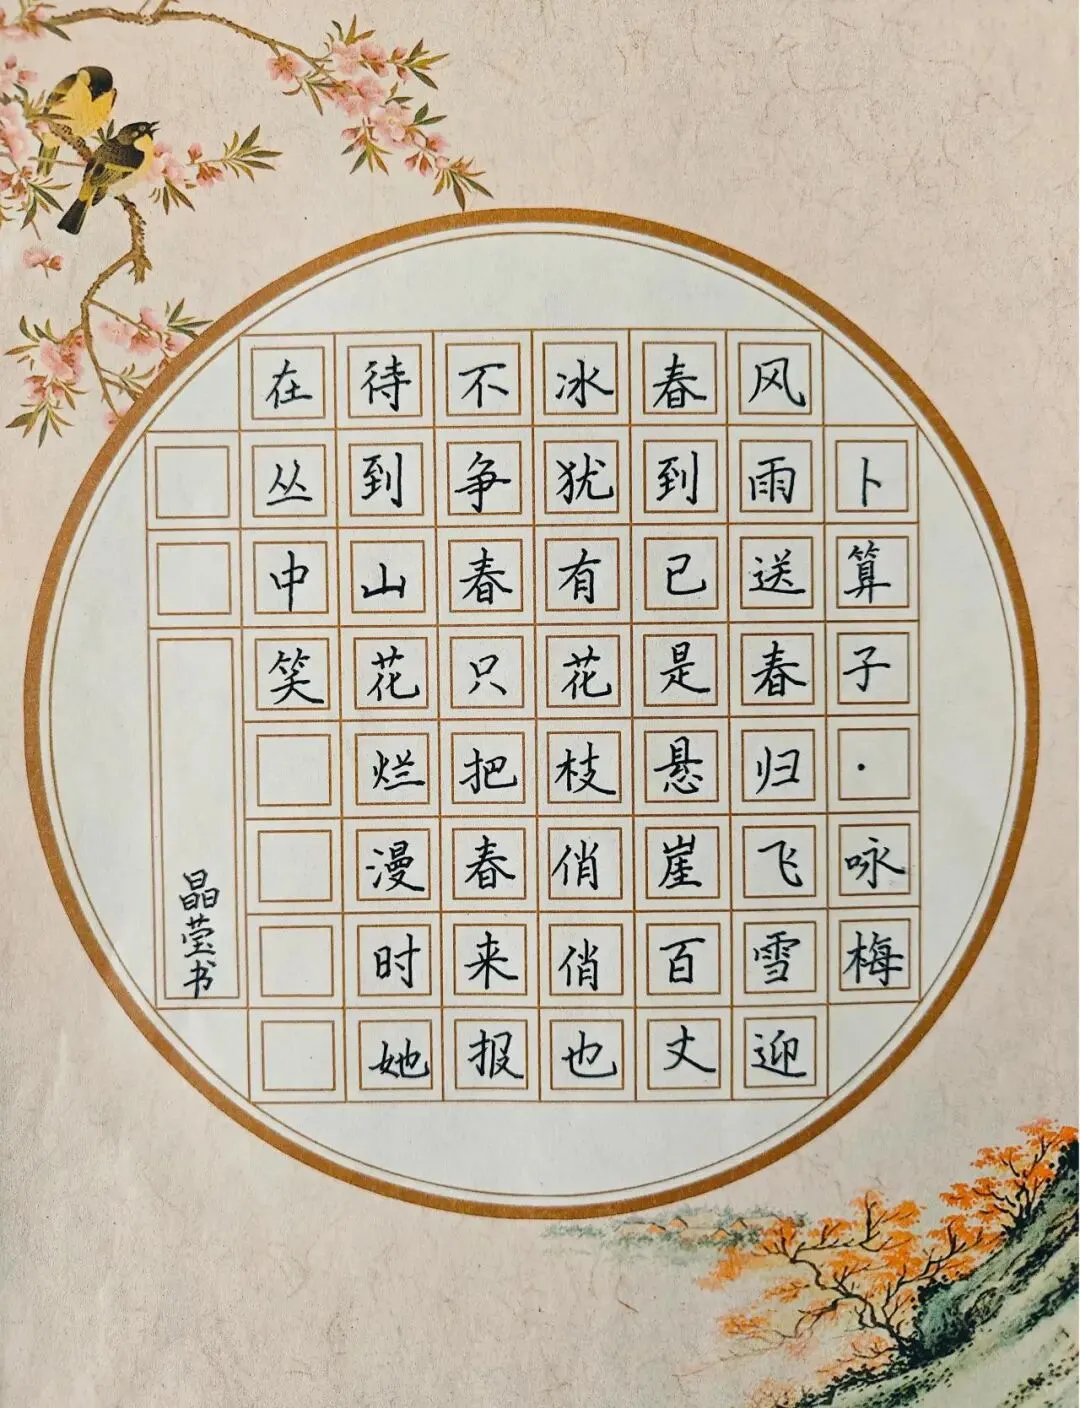 卜算子·咏梅
风雨送春归飞雪迎
春到已是悬崖百丈
冰犹有花枝俏俏也
不争春只把春来报
待到山花烂漫时她
在丛中笑
晶莹书